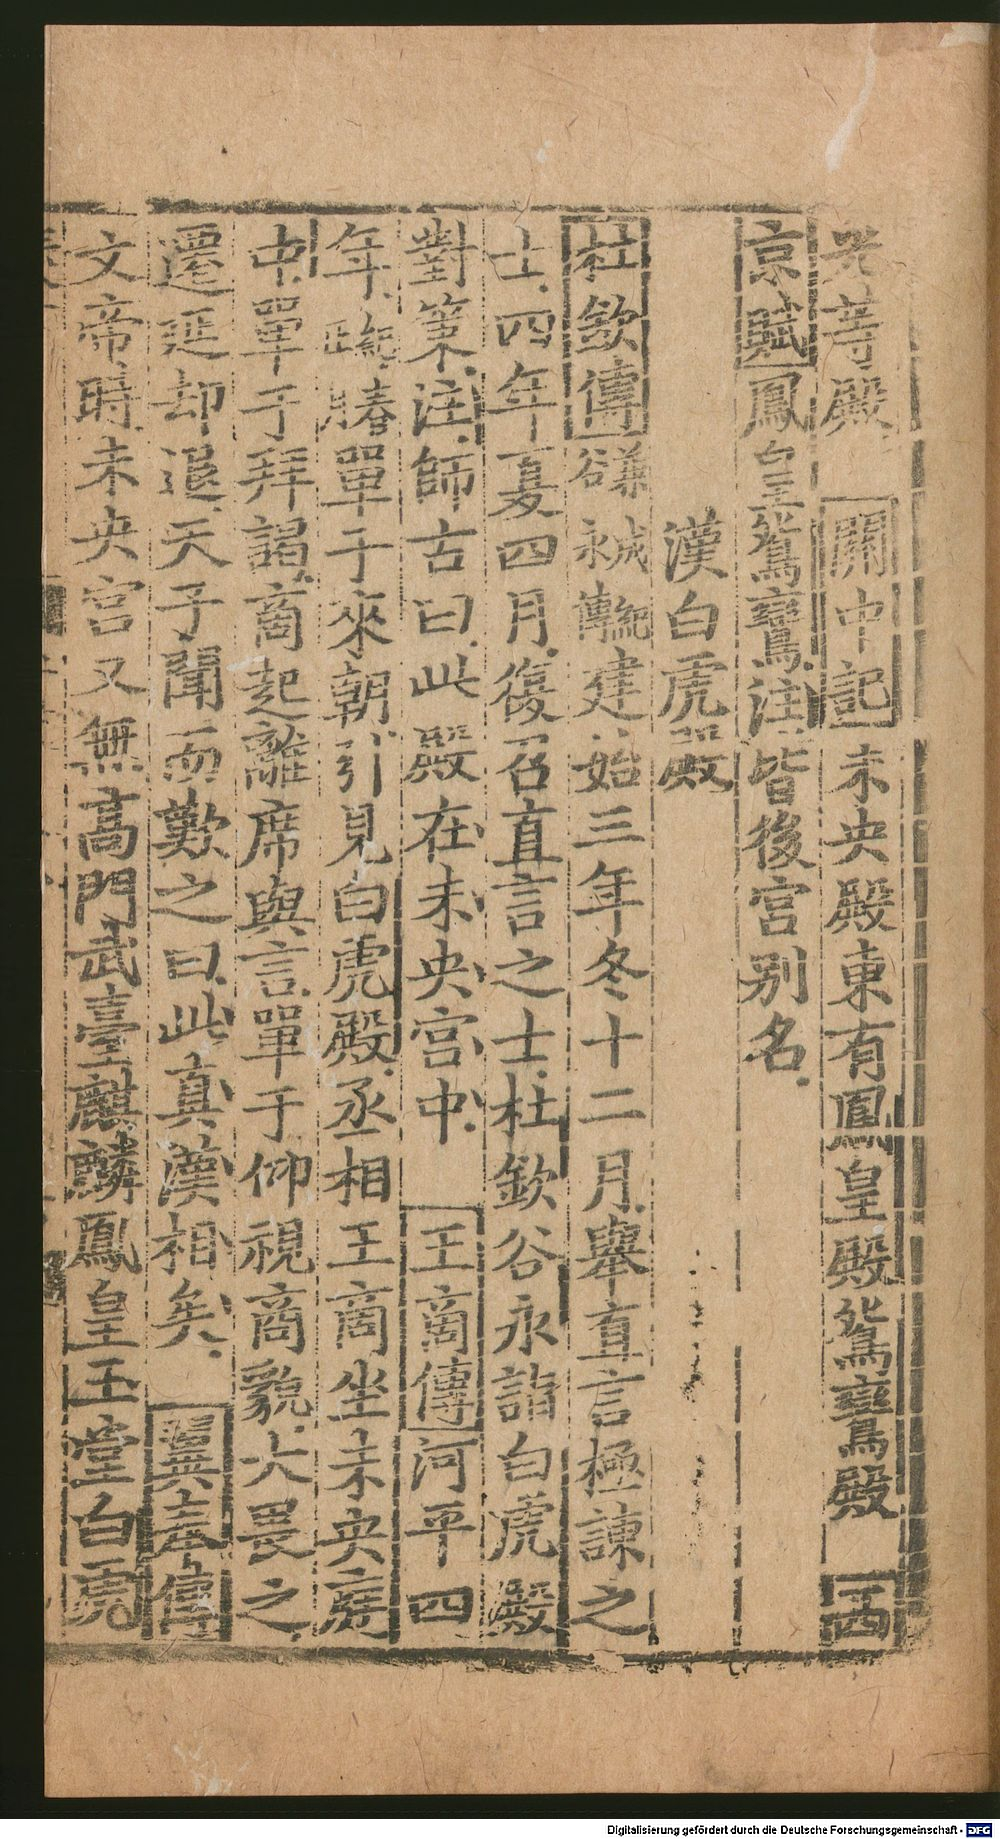 光營殿 關中記 未央殿東有鳳皇殿鴛鸞殿 西
京賦 鳳皇鴛鸞注皆後宮別名
漢白虎殿
杜欽傳 建始三年冬十二月舉直言極諫之
士四年夏四月復召直言之士杜欽谷永詣白虎殿
對策注師古曰此殿在未央宮中 王商傳 河平四
年 單于來朝引見白虎殿丞相王商坐未央庭
中單于拜謁商起離席與言單于仰視商貌大畏之
遷延却退天子聞而歎之曰此真漢相矣 翼奉傳
文帝時未央宮又無高門武臺麒麟鳳皇玉堂白虎
Digitalisierung gefördert durch die Deutsche Forschungsgemeinschaft - DFG